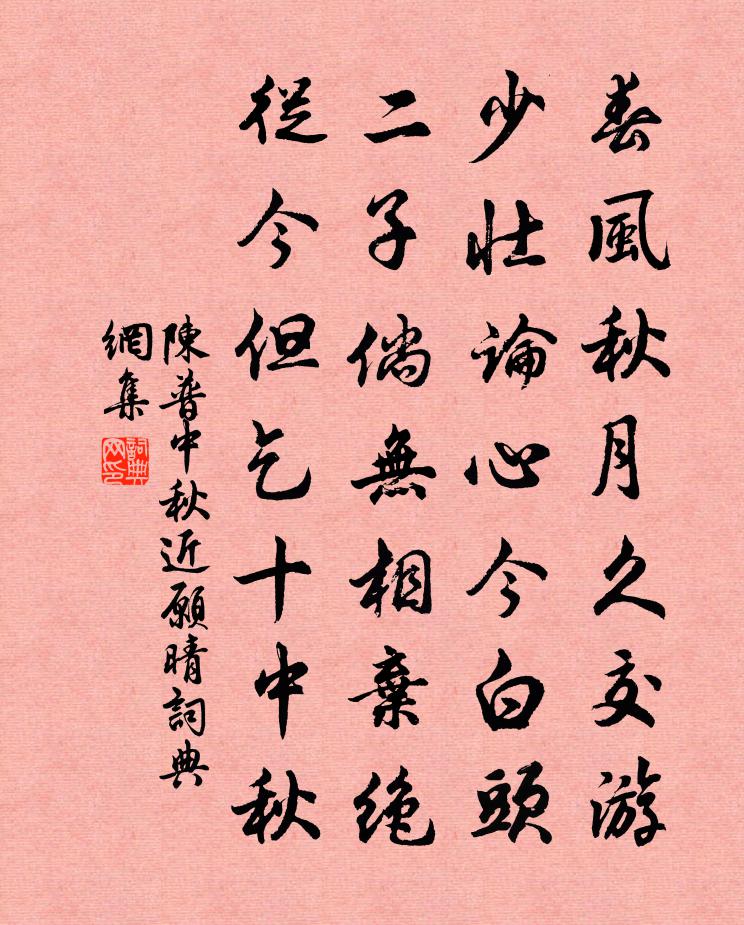 春風秋月久交游
少壯論心今白頭
二子倘無相棄絶
從今但乞十中秋
陳普中秋近願晴詞典
網集
詞典網印